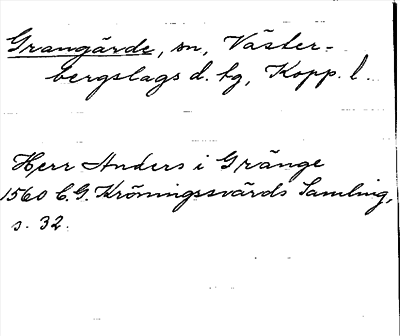 Grangärde, sn, Väster-
bergslags d. tg, Kopp. l.
Herr Anders i Gränge
1560 C.G. Kröningssvärds Samling,
s. 32.